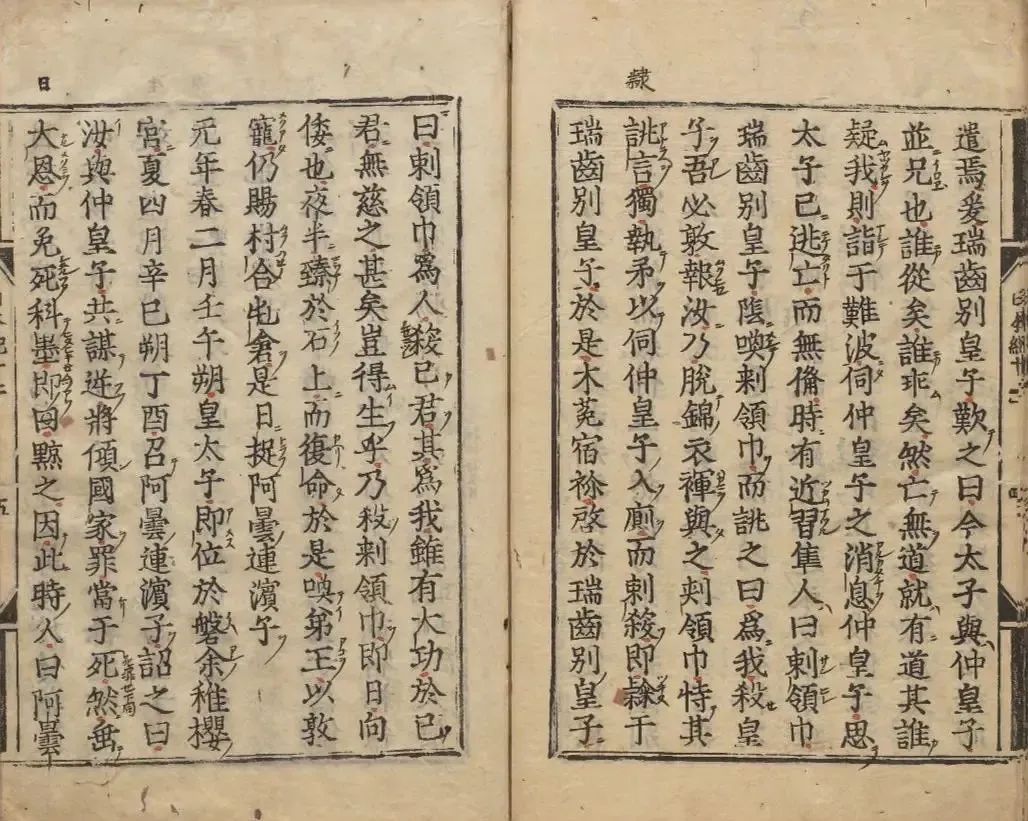 隷
遣焉爰瑞齒別皇子歎之曰今太子與仲皇子
並兄也誰從矣誰乖矣然亡無道就有道其誰
疑我則詣于難波伺仲皇子之消息仲皇子思
太子已逃亡而無備時有近習隼人曰刺領巾
瑞齒別皇子陰喚刺領巾而誂之曰爲我殺皇
子吾必敦報汝乃脱錦衣褌與之刺領巾恃其
誂言獨執矛以伺仲皇子入廁而刺殺即隷于
瑞齒別皇子於是木菟宿祢啓於瑞齒別皇子
日
曰刺領巾爲人殺己君其爲我雖有大功於己
君無慈之甚矣豈得生乎乃殺刺領巾即日向
倭也夜半臻於石上而復命於是喚弟王以敦
寵仍賜村合屯倉是日捉阿曇連濱子
元年春二月壬午朔皇太子即位於磐余稚櫻
宮夏四月辛巳朔丁酉召阿曇連濱子詔之曰
汝與仲皇子共謀逆將傾國家罪當于死然垂
大恩而免死科墨即日黥之因此時人曰阿曇